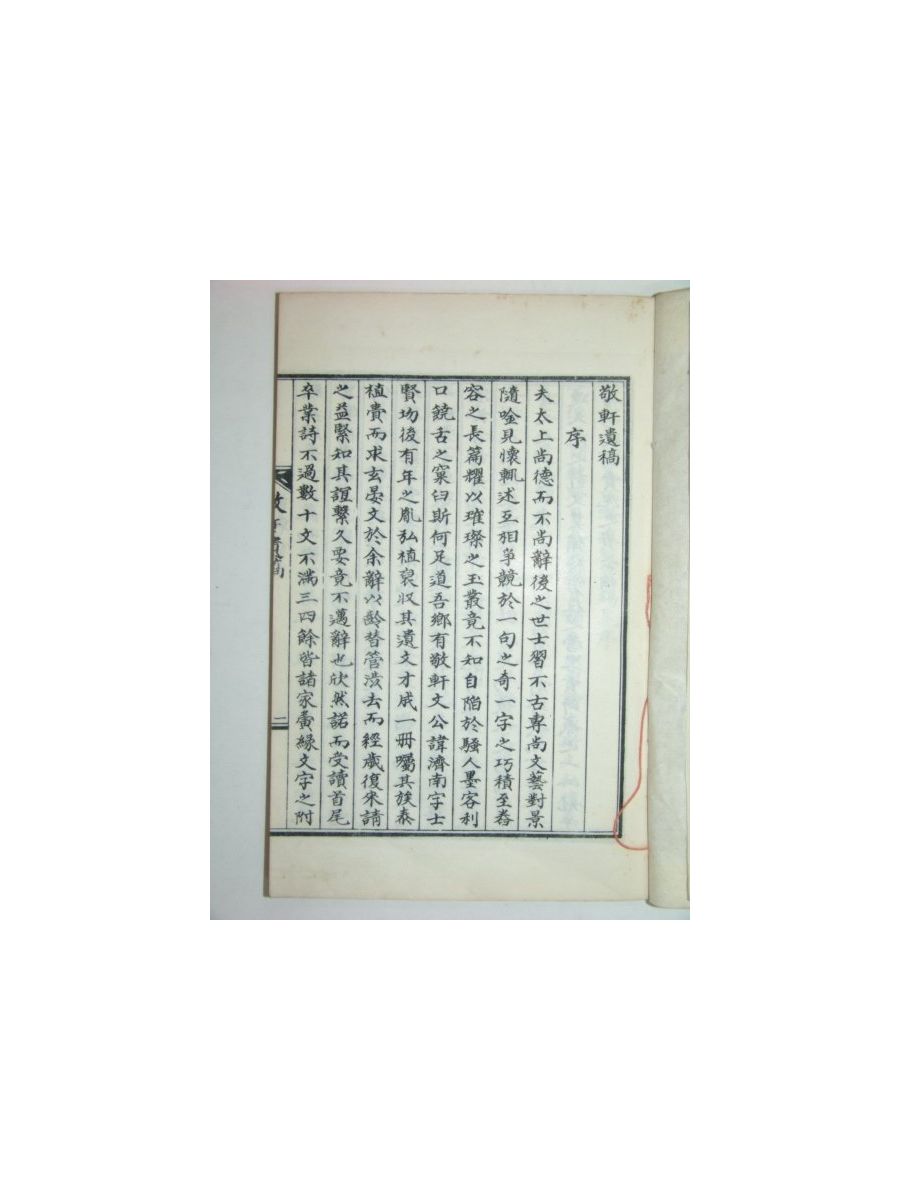 敬軒遺稿
序
夫太上尚德而不尚辭後之世士習不古專尚文藝對景
隨唫見懷輒述互相爭競於一句之奇一字之巧積至春
容之長篇耀以璀璨之玉叢竟不知自陷於騷人墨客利
口饒舌之窠臼斯何足道吾鄉有敬軒文公諱濟南字士
賢歿後有年之胤弘植裒収其遺文才成一冊囑其族泰
植賣而求玄晏文於余辭以齡替管涣去而經歲復來請
之益緊知其誼繫久要竟不邁辭也欣然諾而受讀首尾
卒業詩不過數十文不滿三四餘皆諸家夤緣文字之附
一